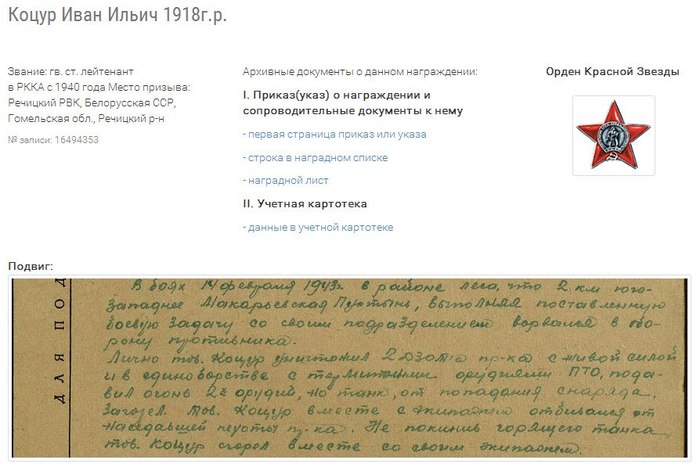 Коцур Иван Ильич 1918г.р.
Звание: гв. ст. лейтенант
в РККА с 1940 года Место призыва:
Речицкий РВК, Белорусская ССР,
Гомельская обл., Речицкий р-н
№ записи: 16494353
Архивные документы о данном награждении:
I. Приказ(указ) о награждении и
сопроводительные документы к нему
- первая страница приказ или указа
- строка в наградном списке
- наградной лист
II. Учетная картотека
- данные в учетной картотеке
Орден Красной Звезды
Подвиг:
ДЛЯ ПОД
В боях 14 февраля 1943г. в районе леса, что 2 км юго-
западнее Макарьевская Пустынь, выполняя поставленную
боевую задачу со своим подразделением ворвался в обо-
рону противника.
Лично тов. Коцур уничтожил 2 дзота пр-ка с живой силой
и в единоборстве с орудиями ПТО, пода-
вил огонь 2х орудий, но танк, от попадания снаряда,
загорел. Тов. Коцур вместе с экипажем отбивался от
наседавшей пехоты пр-ка. Не покинув горящего танка,
тов. Коцур сгорел вместе со своим экипажем.